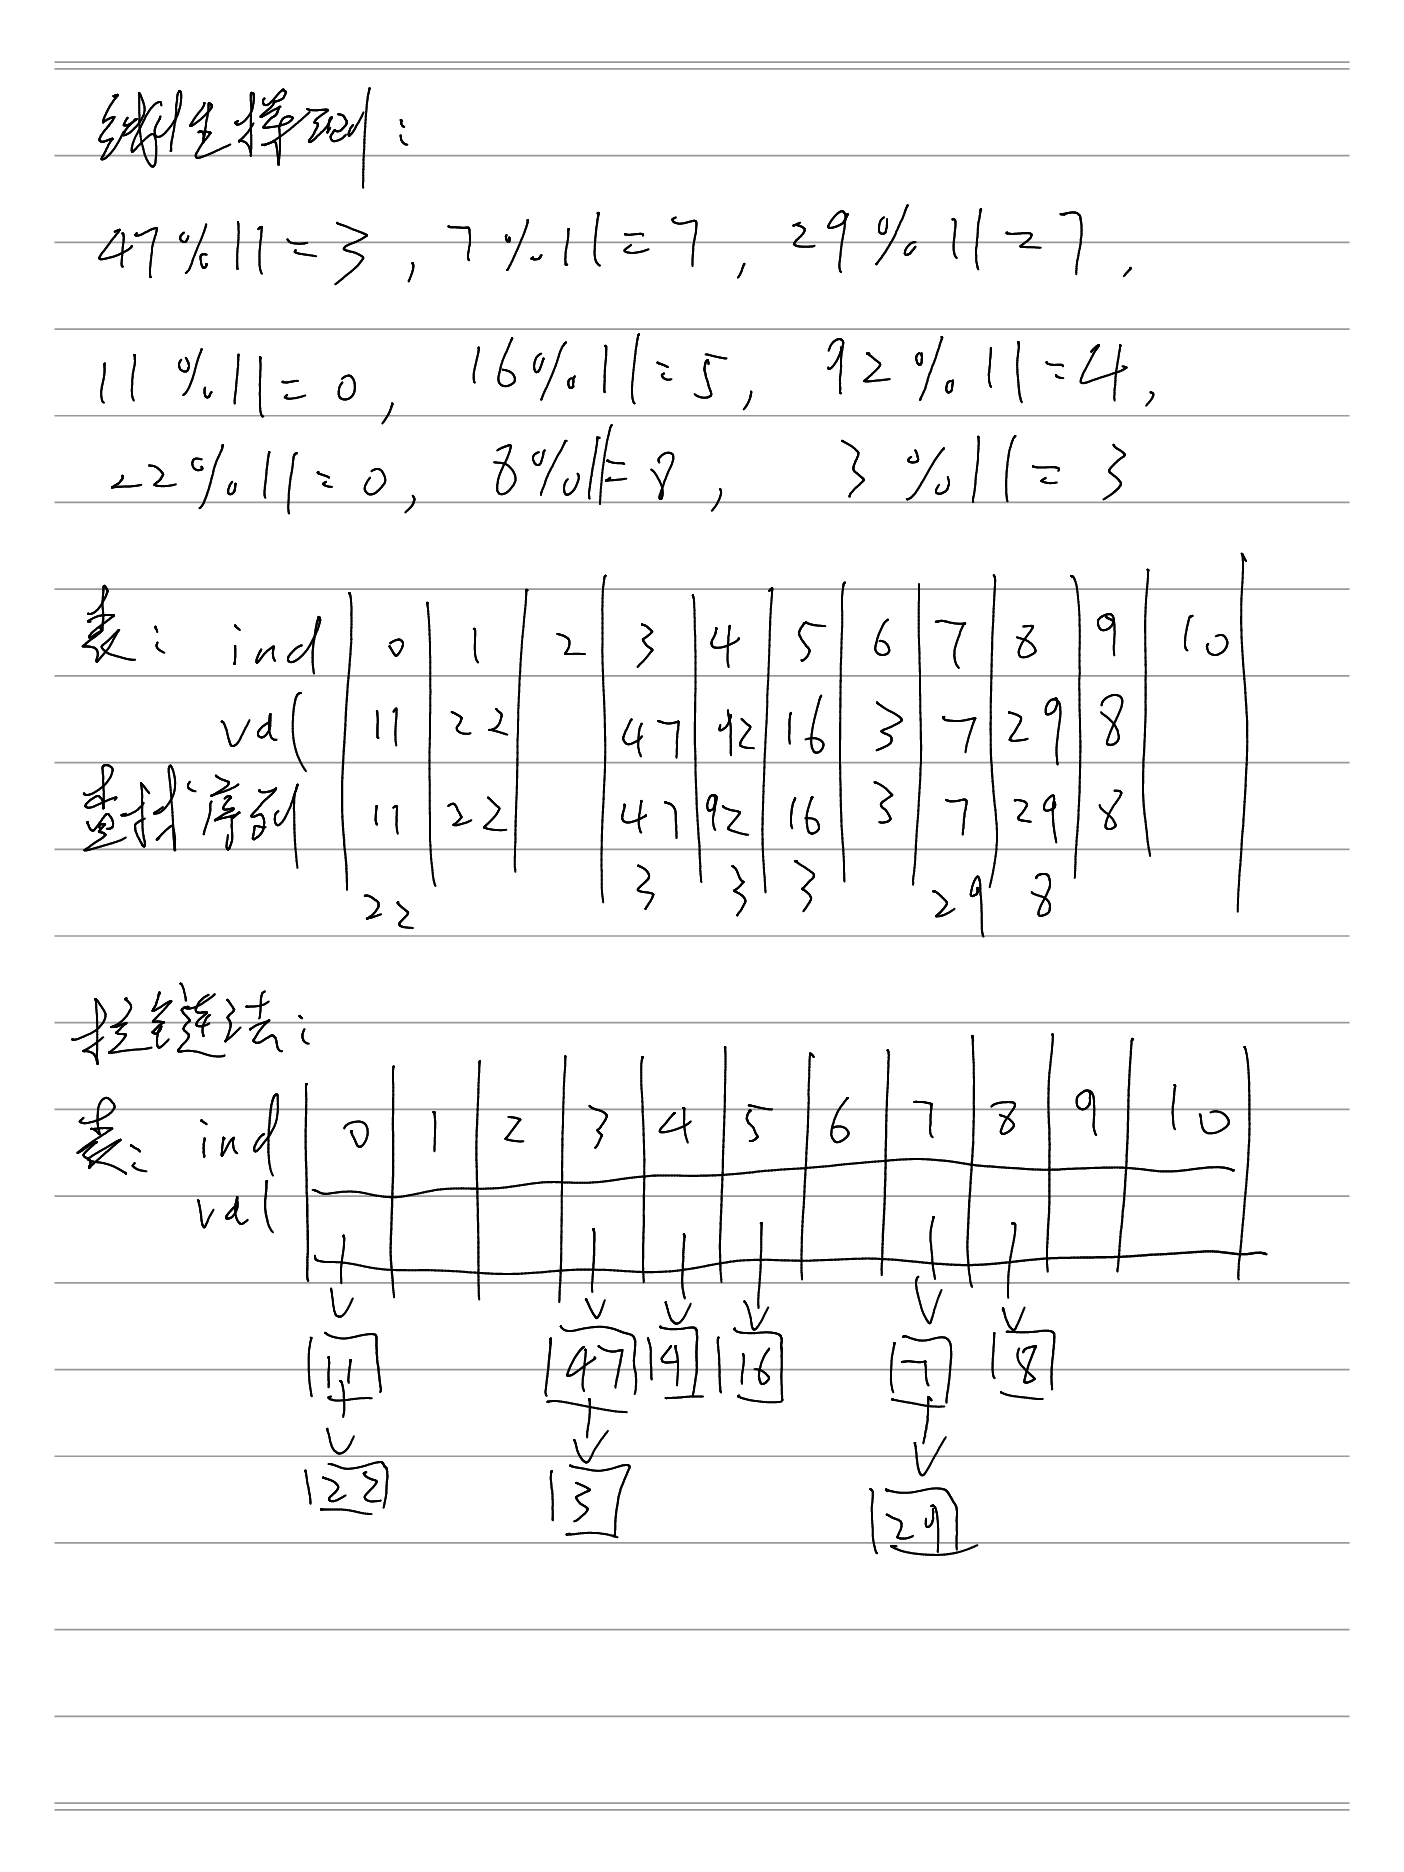 线性探测：
47%11=3, 7%11=7, 29%11=7,
11%11=0, 16%11=5, 92%11=4,
22%11=0, 8%11=8, 3%11=3
表: ind 0 1 2 3 4 5 6 7 8 9 10
val 11 22 47 92 16 3 7 29 8
查找序列 11 22 47 92 16 3 7 29 8
22 3 3 3 29 8
拉链法:
表: ind 0 1 2 3 4 5 6 7 8 9 10
val
11 47 9 16 7 8
22 3 29